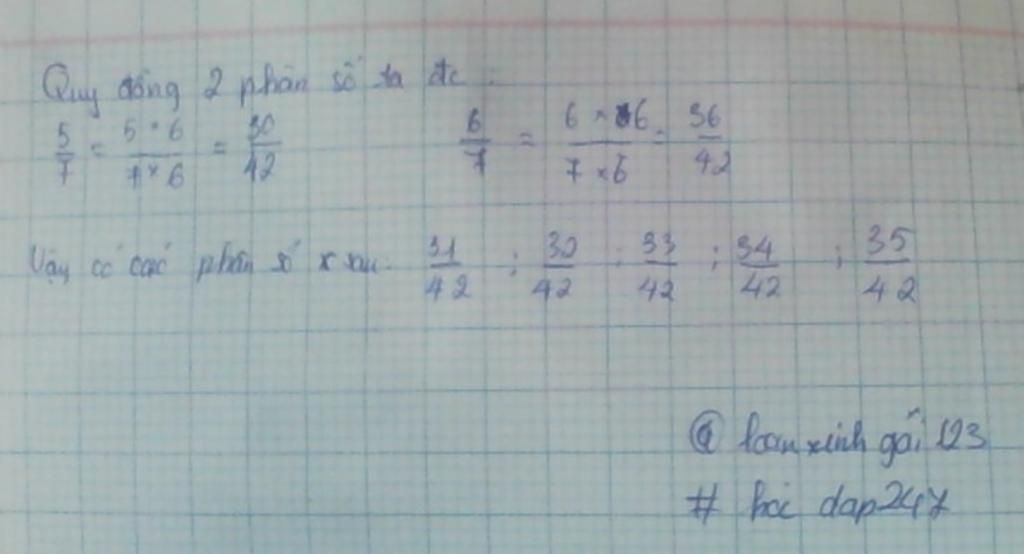 Quy đồng 2 phân số ta đc :
5/7 = 5 × 6 / 7 × 6 = 30/42 6/7 = 6 × 6 / 7 × 6 = 36/42
Vậy có các phân số x sau 31/42 ; 32/42 ; 33/42 ; 34/42 ; 35/42
@ loanxinh gái 123
# hoi dap247